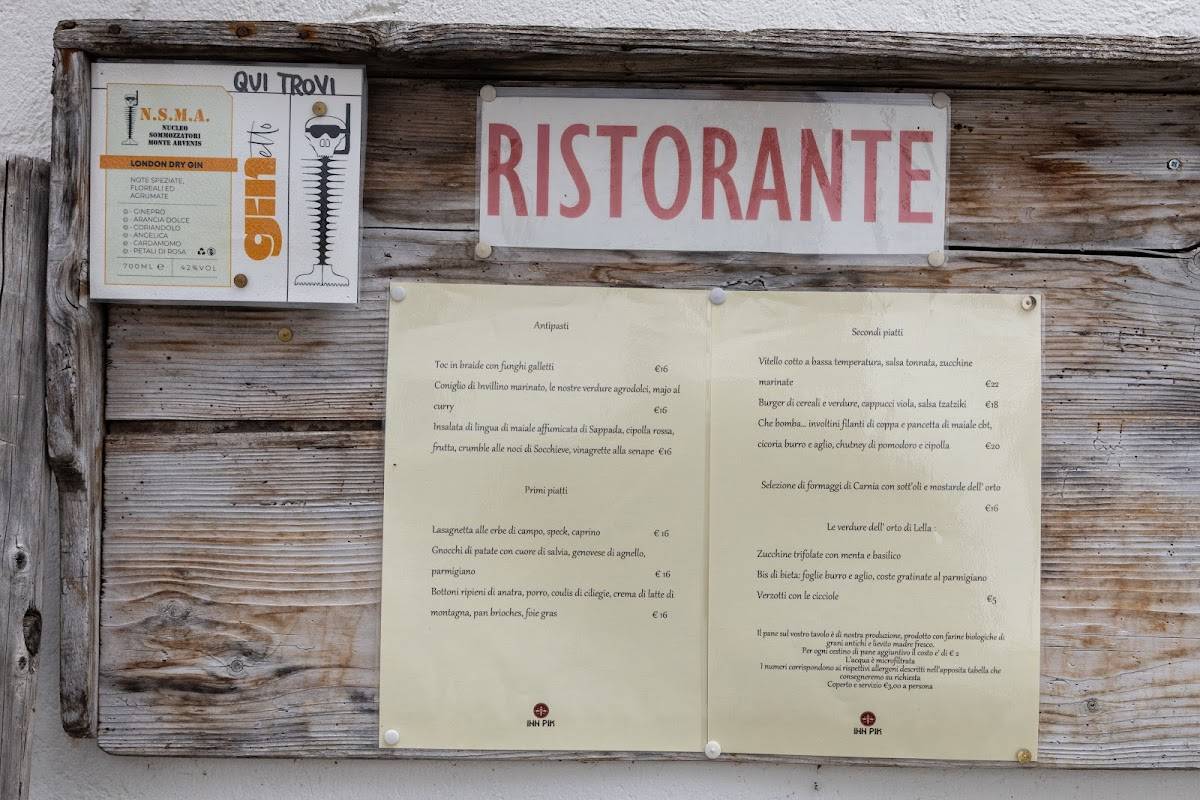 QUI TROVI
N.S.M.A.
NUCLEO
SOMMOZZATORI
MONTE ARVENIS
LONDON DRY GIN
NOTE SPEZIATE,
FLOREALI ED
AGRUMATE
- GINEPRO
- ARANCIA DOLCE
- CORIANDOLO
- ANGELICA
- CARDAMOMO
- PETALI DI ROSA
700ML e 42%VOL
ginetto
RISTORANTE
Antipasti
Toc in braide con funghi galletti €16
Coniglio di Invillino marinato, le nostre verdure agrodolci, majo al
curry €16
Insalata di lingua di maiale affumicata di Sappada, cipolla rossa,
frutta, crumble alle noci di Socchieve, vinagrette alla senape €16
Primi piatti
Lasagnetta alle erbe di campo, speck, caprino € 16
Gnocchi di patate con cuore di salvia, genovese di agnello,
parmigiano € 16
Bottoni ripieni di anatra, porro, coulis di ciliegie, crema di latte di
montagna, pan brioches, foie gras € 16
INN PIK
Secondi piatti
Vitello cotto a bassa temperatura, salsa tonnata, zucchine
marinate €22
Burger di cereali e verdure, cappucci viola, salsa tzatziki €18
Che bomba... involtini filanti di coppa e pancetta di maiale cbt,
cicoria burro e aglio, chutney di pomodoro e cipolla €20
Selezione di formaggi di Carnia con sott'oli e mostarde dell' orto
€16
Le verdure dell' orto di Lella :
Zucchine trifolate con menta e basilico
Bis di bieta: foglie burro e aglio, coste gratinate al parmigiano
Verzotti con le cicciole €5
Il pane sul vostro tavolo è di nostra produzione, prodotto con farine biologiche di
grani antichi e lievito madre fresco.
Per ogni cestino di pane aggiuntivo il costo e' di € 2
L'acqua è microfiltrata
I numeri corrispondono ai rispettivi allergeni descritti nell'apposita tabella che
consegneremo su richiesta
Coperto e servizio €3,00 a persona
INN PIK